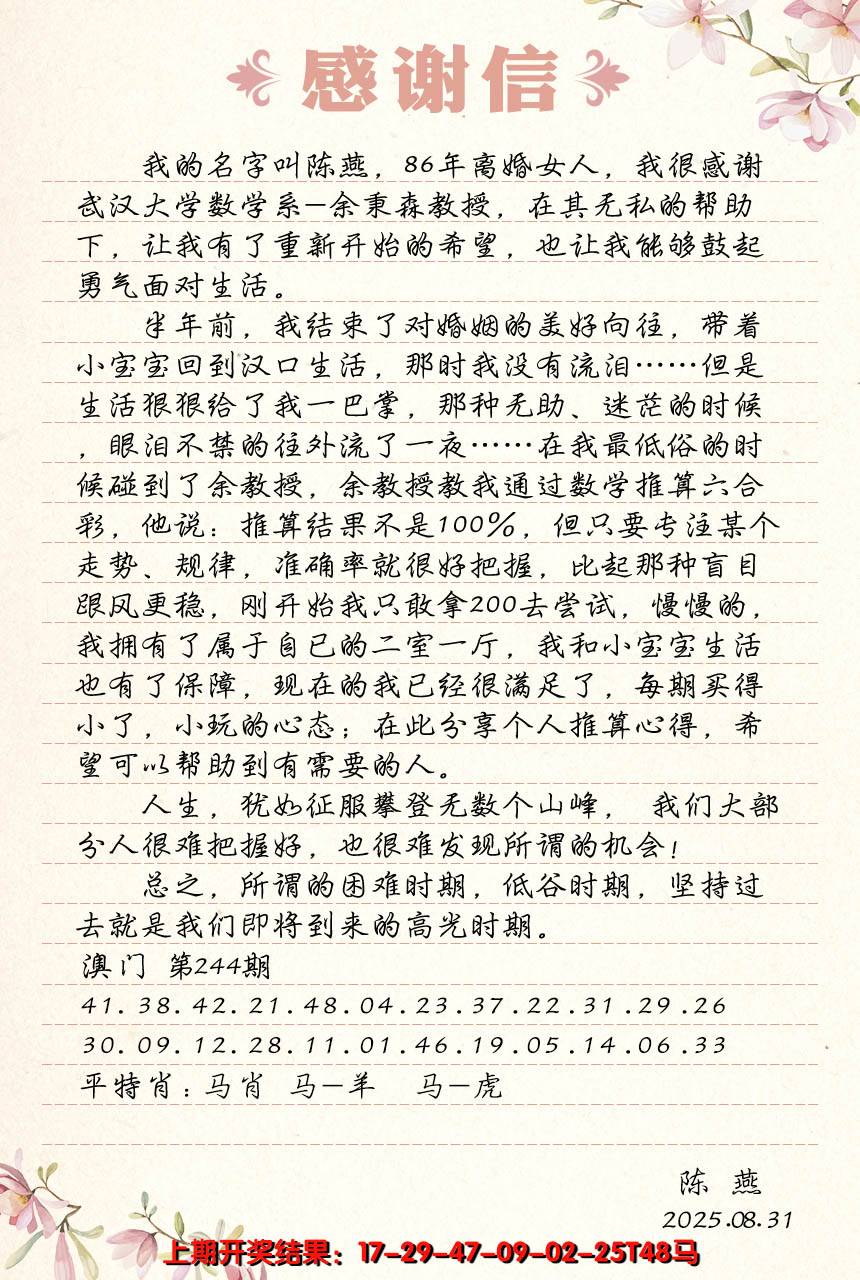 感谢信
我的名字叫陈燕，86年离婚女人，我很感谢
武汉大学数学系—余秉森教授，在其无私的帮助
下，让我有了重新开始的希望，也让我能够鼓起
勇气面对生活。
半年前，我结束了对婚姻的美好向往，带着
小宝宝回到汉口生活，那时我没有流泪……但是
生活狠狠给了我一巴掌，那种无助、迷茫的时候
，眼泪不禁的往外流了一夜……在我最低俗的时
候碰到了余教授，余教授教我通过数学推算六合
彩，他说：推算结果不是100%，但只要专注某个
走势、规律，准确率就很好把握，比起那种盲目
跟风更稳，刚开始我只敢拿200去尝试，慢慢的，
我拥有了属于自已的二室一厅，我和小宝宝生活
也有了保障，现在的我已经很满足了，每期买得
小了，小玩的心态；在此分享个人推算心得，希
望可以帮助到有需要的人。
人生，犹如征服攀登无数个山峰， 我们大部
分人很难把握好，也很难发现所谓的机会！
总之，所谓的困难时期，低谷时期，坚持过
去就是我们即将到来的高光时期。
澳门 第244期
41.38.42.21.48.04.23.37.22.31.29.26
30.09.12.28.11.01.46.19.05.14.06.33
平特肖：马肖 马—羊 马—虎
陈 燕
2025.08.31
上期开奖结果：17-29-47-09-02-25T48马